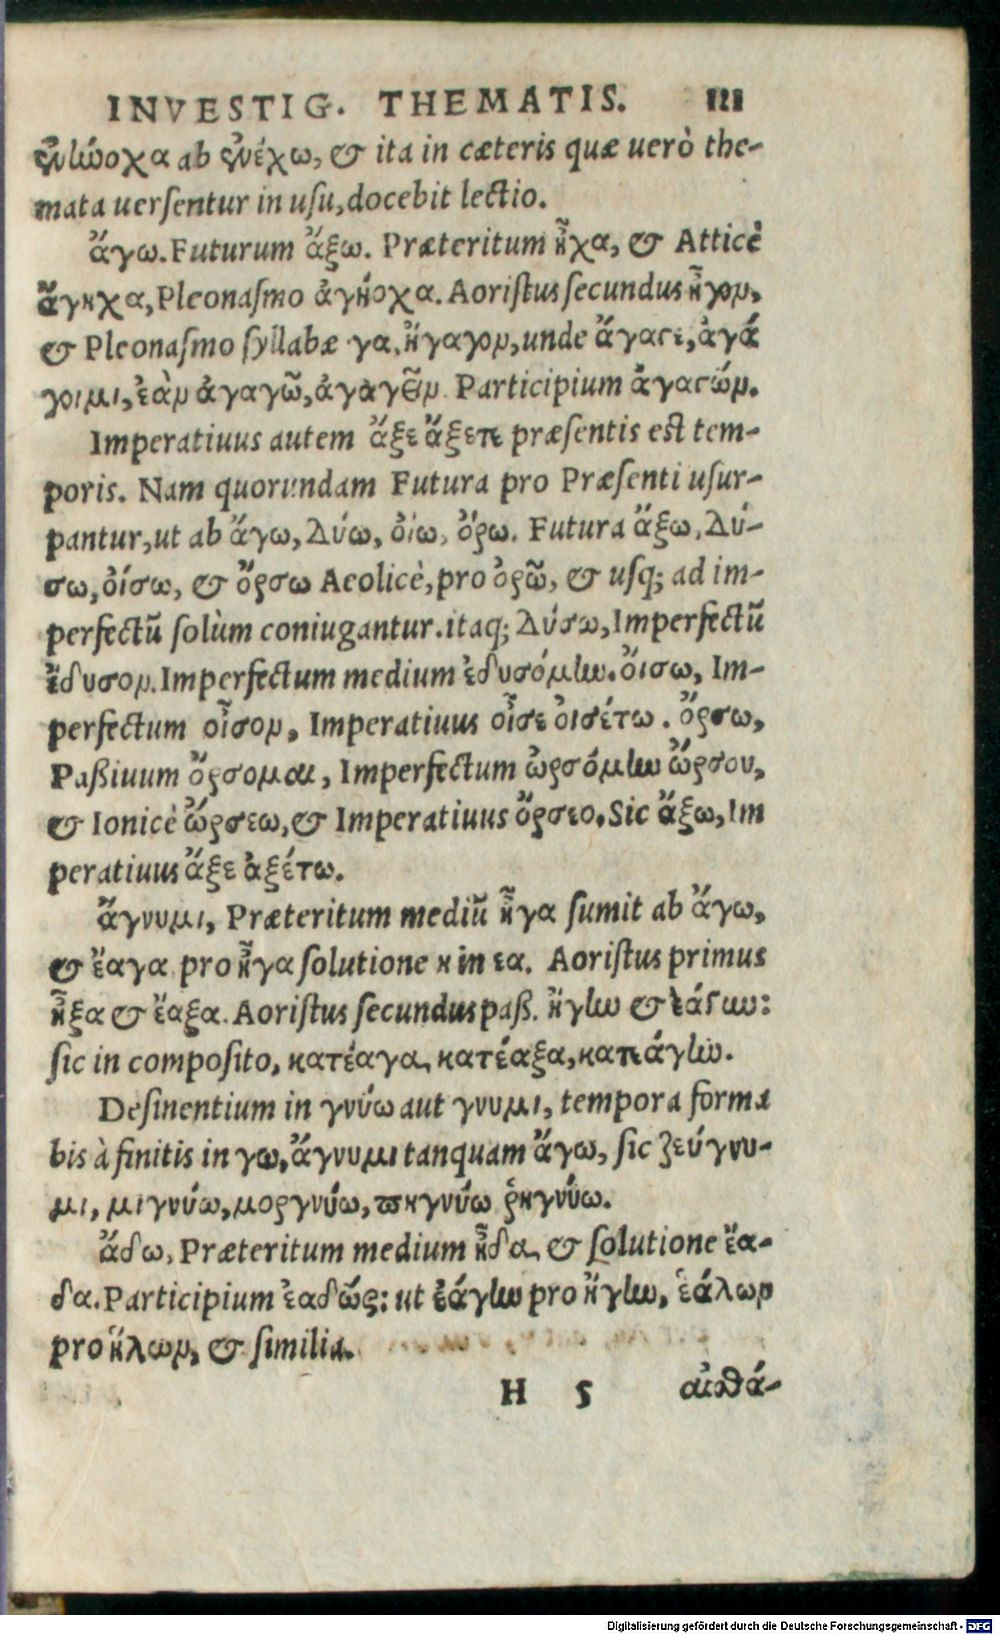 INVESTIG. THEMATIS. 121
ἐνήνοχα ab ἐνέχω, & ita in cæteris quæ uerò the-
mata uersentur in usu, docebit lectio.
ἄγω. Futurum ἄξω. Præteritum ἦχα, & Atticè
ἄγηχα, Pleonasmo ἀγήοχα. Aoristus secundus ἦγον,
& Pleonasmo syllabæ γα, ἤγαγον, unde ἄγαγε, ἀγά
γοιμι, ἐὰν ἀγαγῶ, ἀγαγεῖν. Participium ἀγαγών.
Imperatiuus autem ἄξε ἄξετε præsentis est tem-
poris. Nam quorundam Futura pro Præsenti usur-
pantur, ut ab ἄγω, Δύω, οἴω, ὄρω. Futura ἄξω, Δύ-
σω, οἴσω, & ὄρσω Aeolicè, pro ὀρῶ, & usq; ad im-
perfectũ solùm coniugantur. itaq; Δύσω, Imperfectũ
ἔδυσον. Imperfectum medium ἐδυσόμην. οἴσω, Im-
perfectum οἶσον, Imperatiuus οἶσε οἰσέτω. ὄρσω,
Paßiuum ὄρσομαι, Imperfectum ὠρσόμην ὤρσου,
& Ionicè ὤρσεω, & Imperatiuus ὄρσεο. Sic ἄξω, Im
peratiuus ἄξε ἀξέτω.
ἄγνυμι, Præteritum mediũ ἦγα sumit ab ἄγω,
& ἔαγα pro ἦγα solutione η in εα. Aoristus primus
ἦξα & ἔαξα. Aoristus secundus paß. ἤγην & ἐάγην:
sic in composito, κατέαγα, κατέαξα, κατεάγην.
Desinentium in γνύω aut γνυμι, tempora forma
bis à finitis in γω, ἄγνυμι tanquam ἄγω, sic ζεύγνυ-
μι, μιγνύω, μοργνύω, πηγνύω ῥηγνύω.
ἄδω, Præteritum medium ἦδα, & solutione ἔα-
δα. Participium ἐαδώς: ut ἐάγην pro ἤγην, ἑάλων
pro ἥλων, & similia.
H 5 αἰσθά-
Digitalisierung gefördert durch die Deutsche Forschungsgemeinschaft - DFG